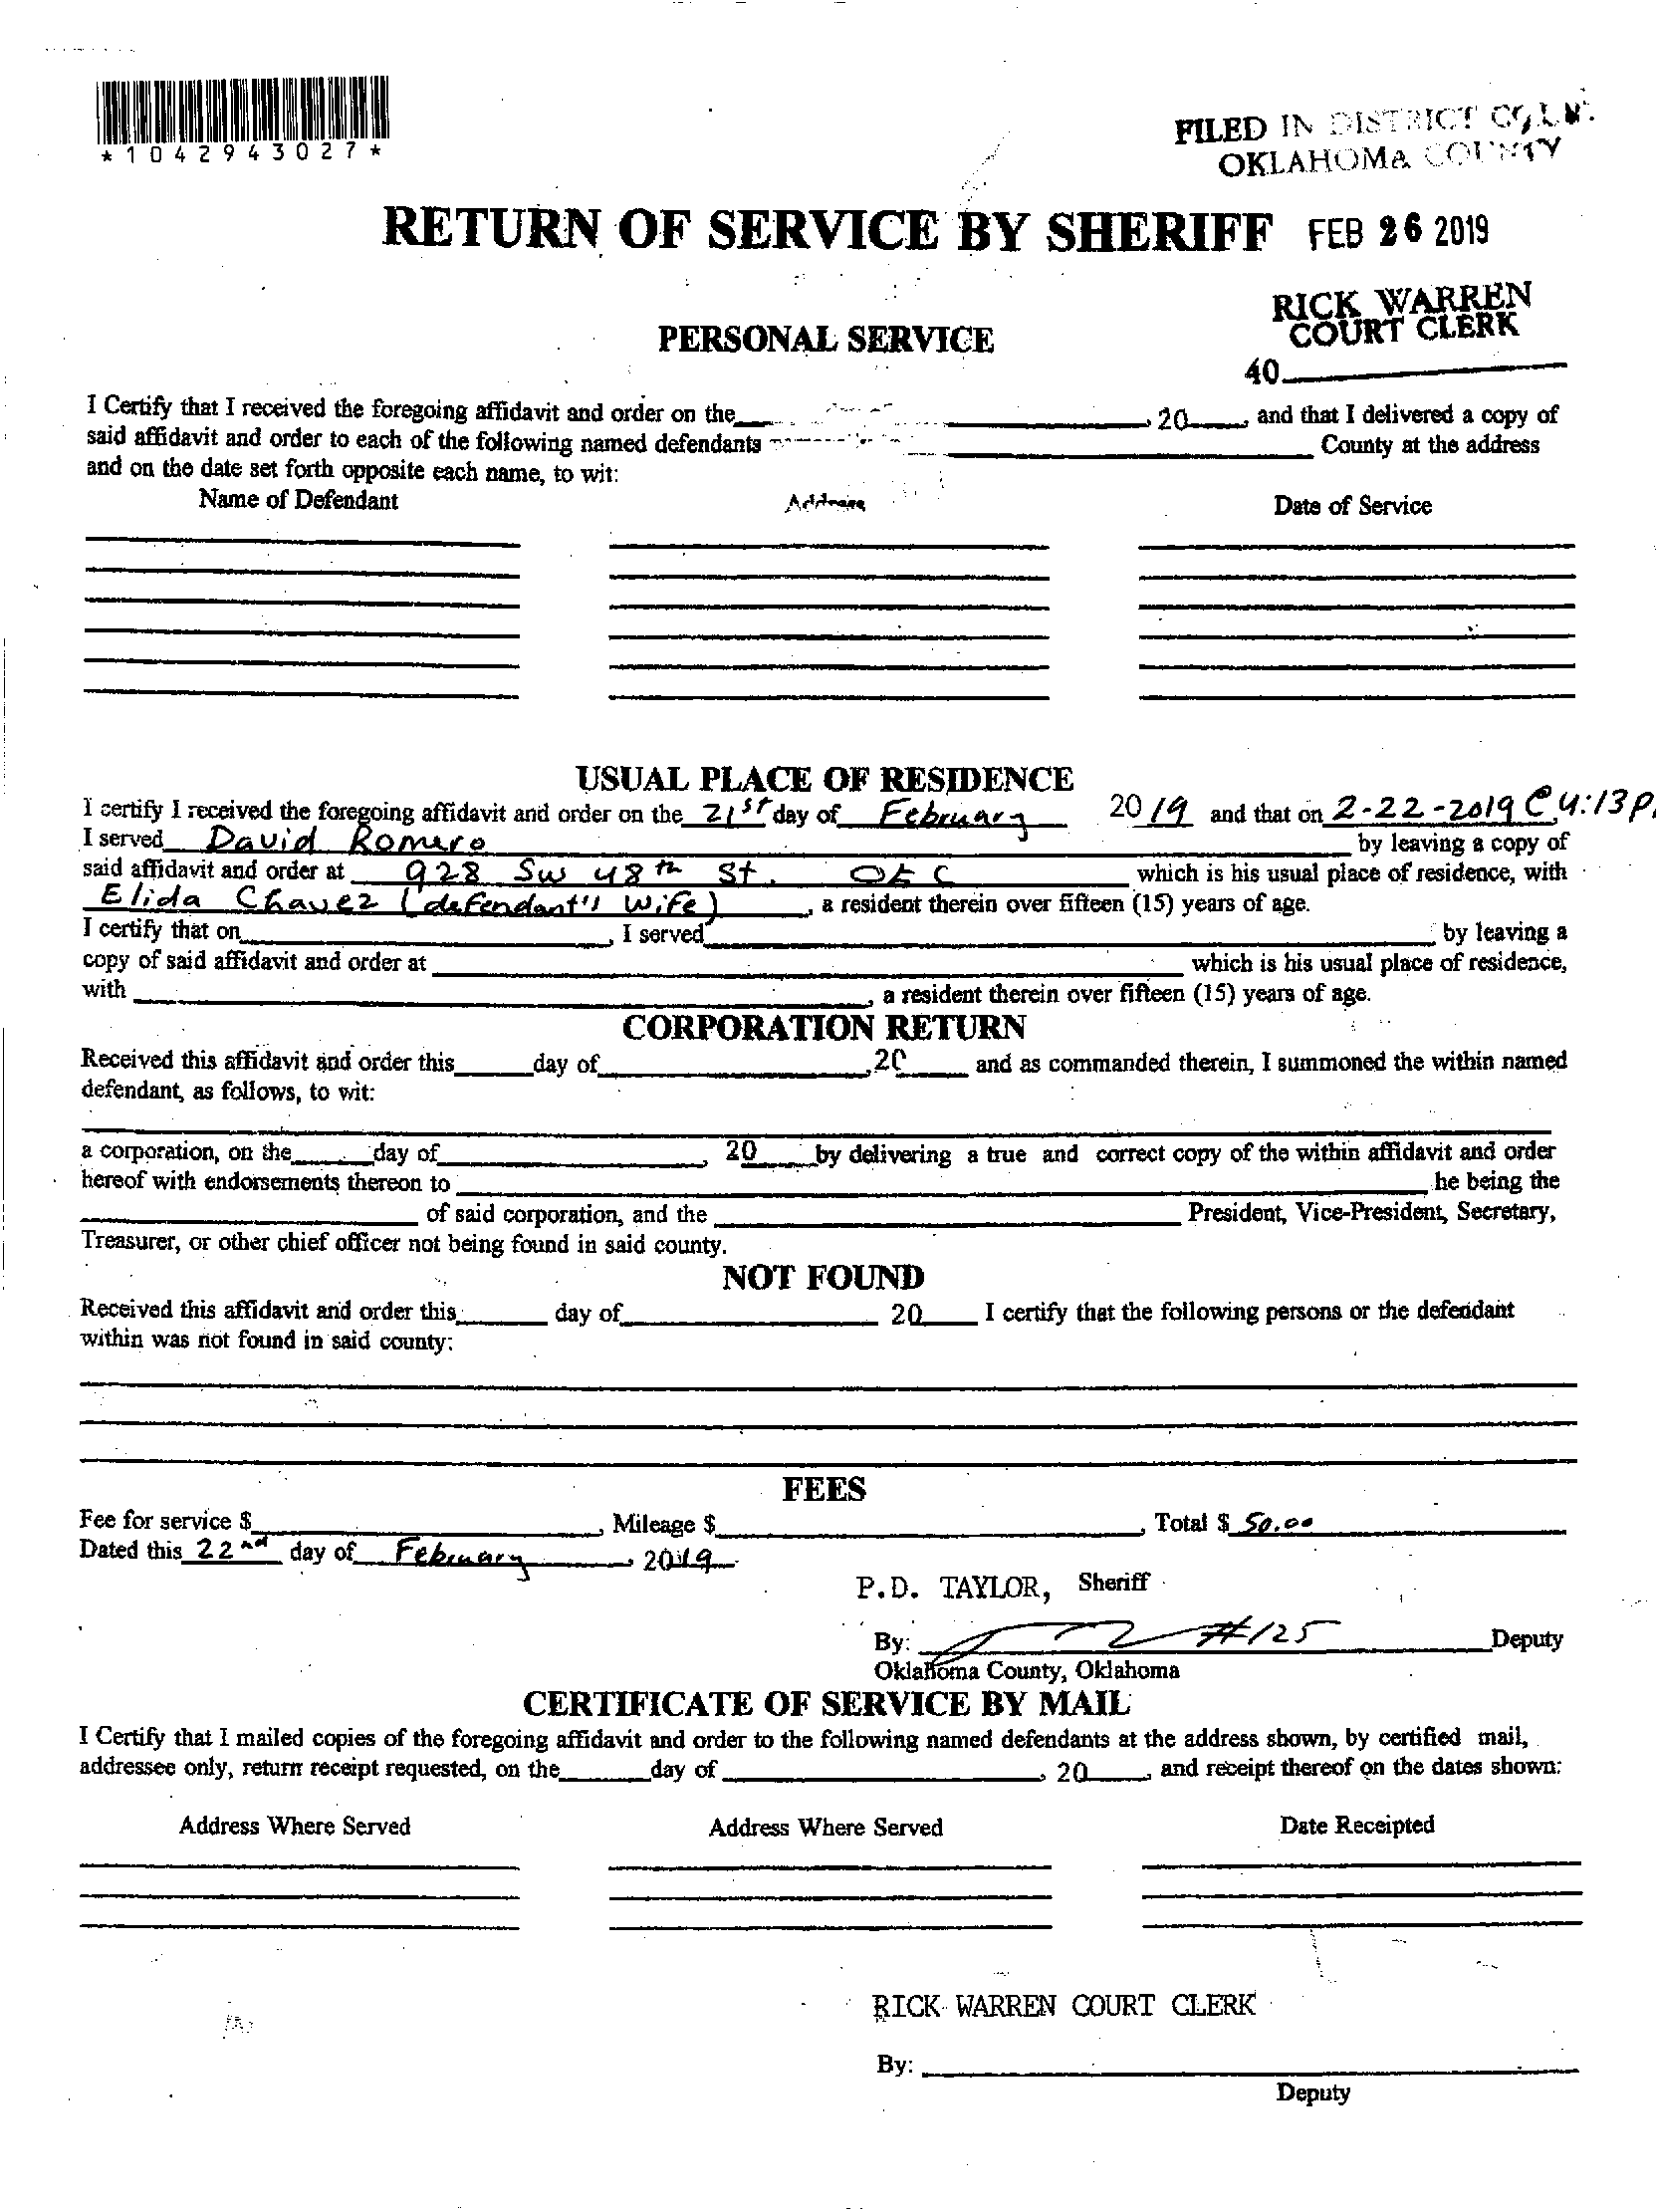 *1042943027*
FILED IN DISTRICT
OKLAHOMA COUNTY
RETURN OF SERVICE BY SHERIFF FEB 26 2019
RICK WARREN
COURT CLERK
PERSONAL SERVICE
40
I Certify that I received the foregoing affidavit and order on the , 20 , and that I delivered a copy of
said affidavit and order to each of the following named defendants County at the address
and on the date set forth opposite each name, to wit:
Name of Defendant Address Date of Service
USUAL PLACE OF RESIDENCE
I certify I received the foregoing affidavit and order on the 21st day of February 2019 and that on 2-22-2019 @ 4:13P
I served David Romero by leaving a copy of
said affidavit and order at 928 SW 48th St. OKC which is his usual place of residence, with
Elida Chavez (defendant's wife) , a resident therein over fifteen (15) years of age.
I certify that on , I served by leaving a
copy of said affidavit and order at which is his usual place of residence,
with , a resident therein over fifteen (15) years of age.
CORPORATION RETURN
Received this affidavit and order this day of , 20 and as commanded therein, I summoned the within named
defendant, as follows, to wit:
a corporation, on the day of , 20 by delivering a true and correct copy of the within affidavit and order
hereof with endorsements thereon to he being the
of said corporation, and the President, Vice-President, Secretary,
Treasurer, or other chief officer not being found in said county.
NOT FOUND
Received this affidavit and order this day of 20 I certify that the following persons or the defendant
within was not found in said county:
FEES
Fee for service $ , Mileage $ , Total $ 50.00
Dated this 22nd day of February , 2019
P.D. TAYLOR, Sheriff
By: #125 Deputy
Oklahoma County, Oklahoma
CERTIFICATE OF SERVICE BY MAIL
I Certify that I mailed copies of the foregoing affidavit and order to the following named defendants at the address shown, by certified mail,
addressee only, return receipt requested, on the day of , 20 , and receipt thereof on the dates shown:
Address Where Served Address Where Served Date Receipted
RICK WARREN COURT CLERK
By:
Deputy